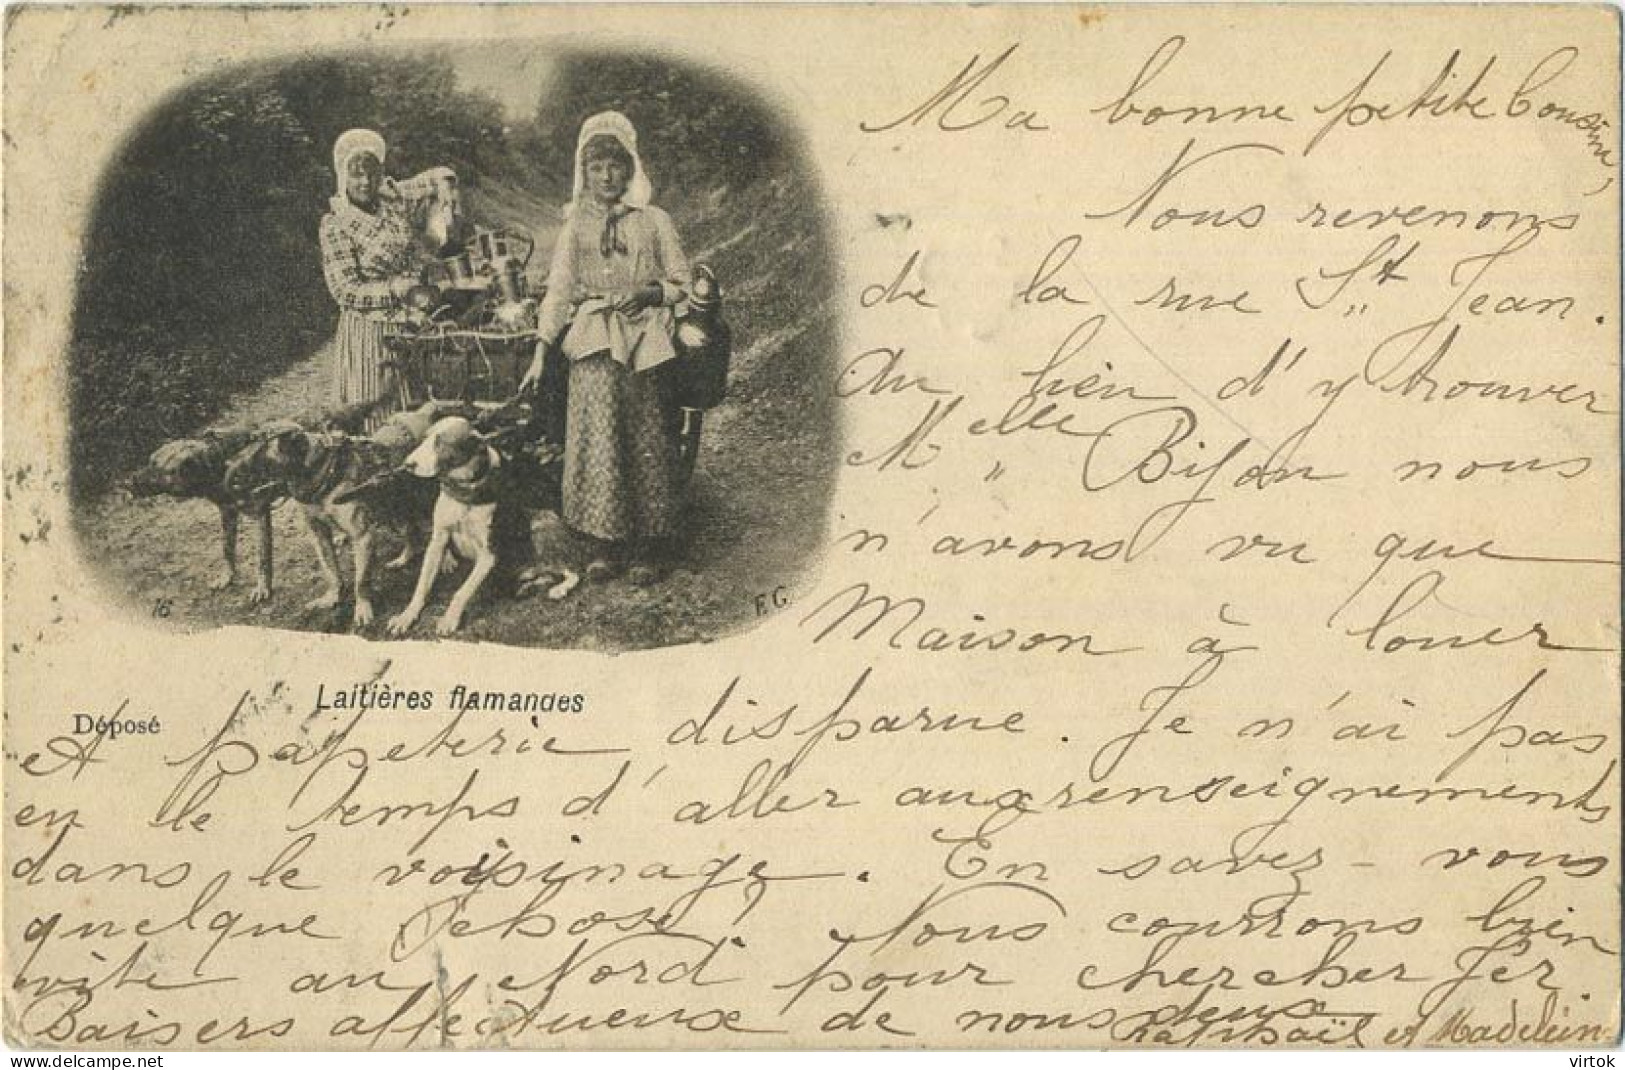 Ma bonne petite Cousine,
Nous revenons
de la rue St Jean.
Au lieu d'y trouver
Melle Bijon nous
n'avons vu que
Maison à louer
16
F. G.
Laitières flamandes
Déposé
et papeterie disparue. Je n'ai pas
eu le temps d'aller aux renseignements
dans le voisinage. En savez-vous
quelque chose? Nous courrons bien
vite au Nord pour chercher Jér.
Baisers affectueux de nous deux
Raphaël et Madelein
virtok